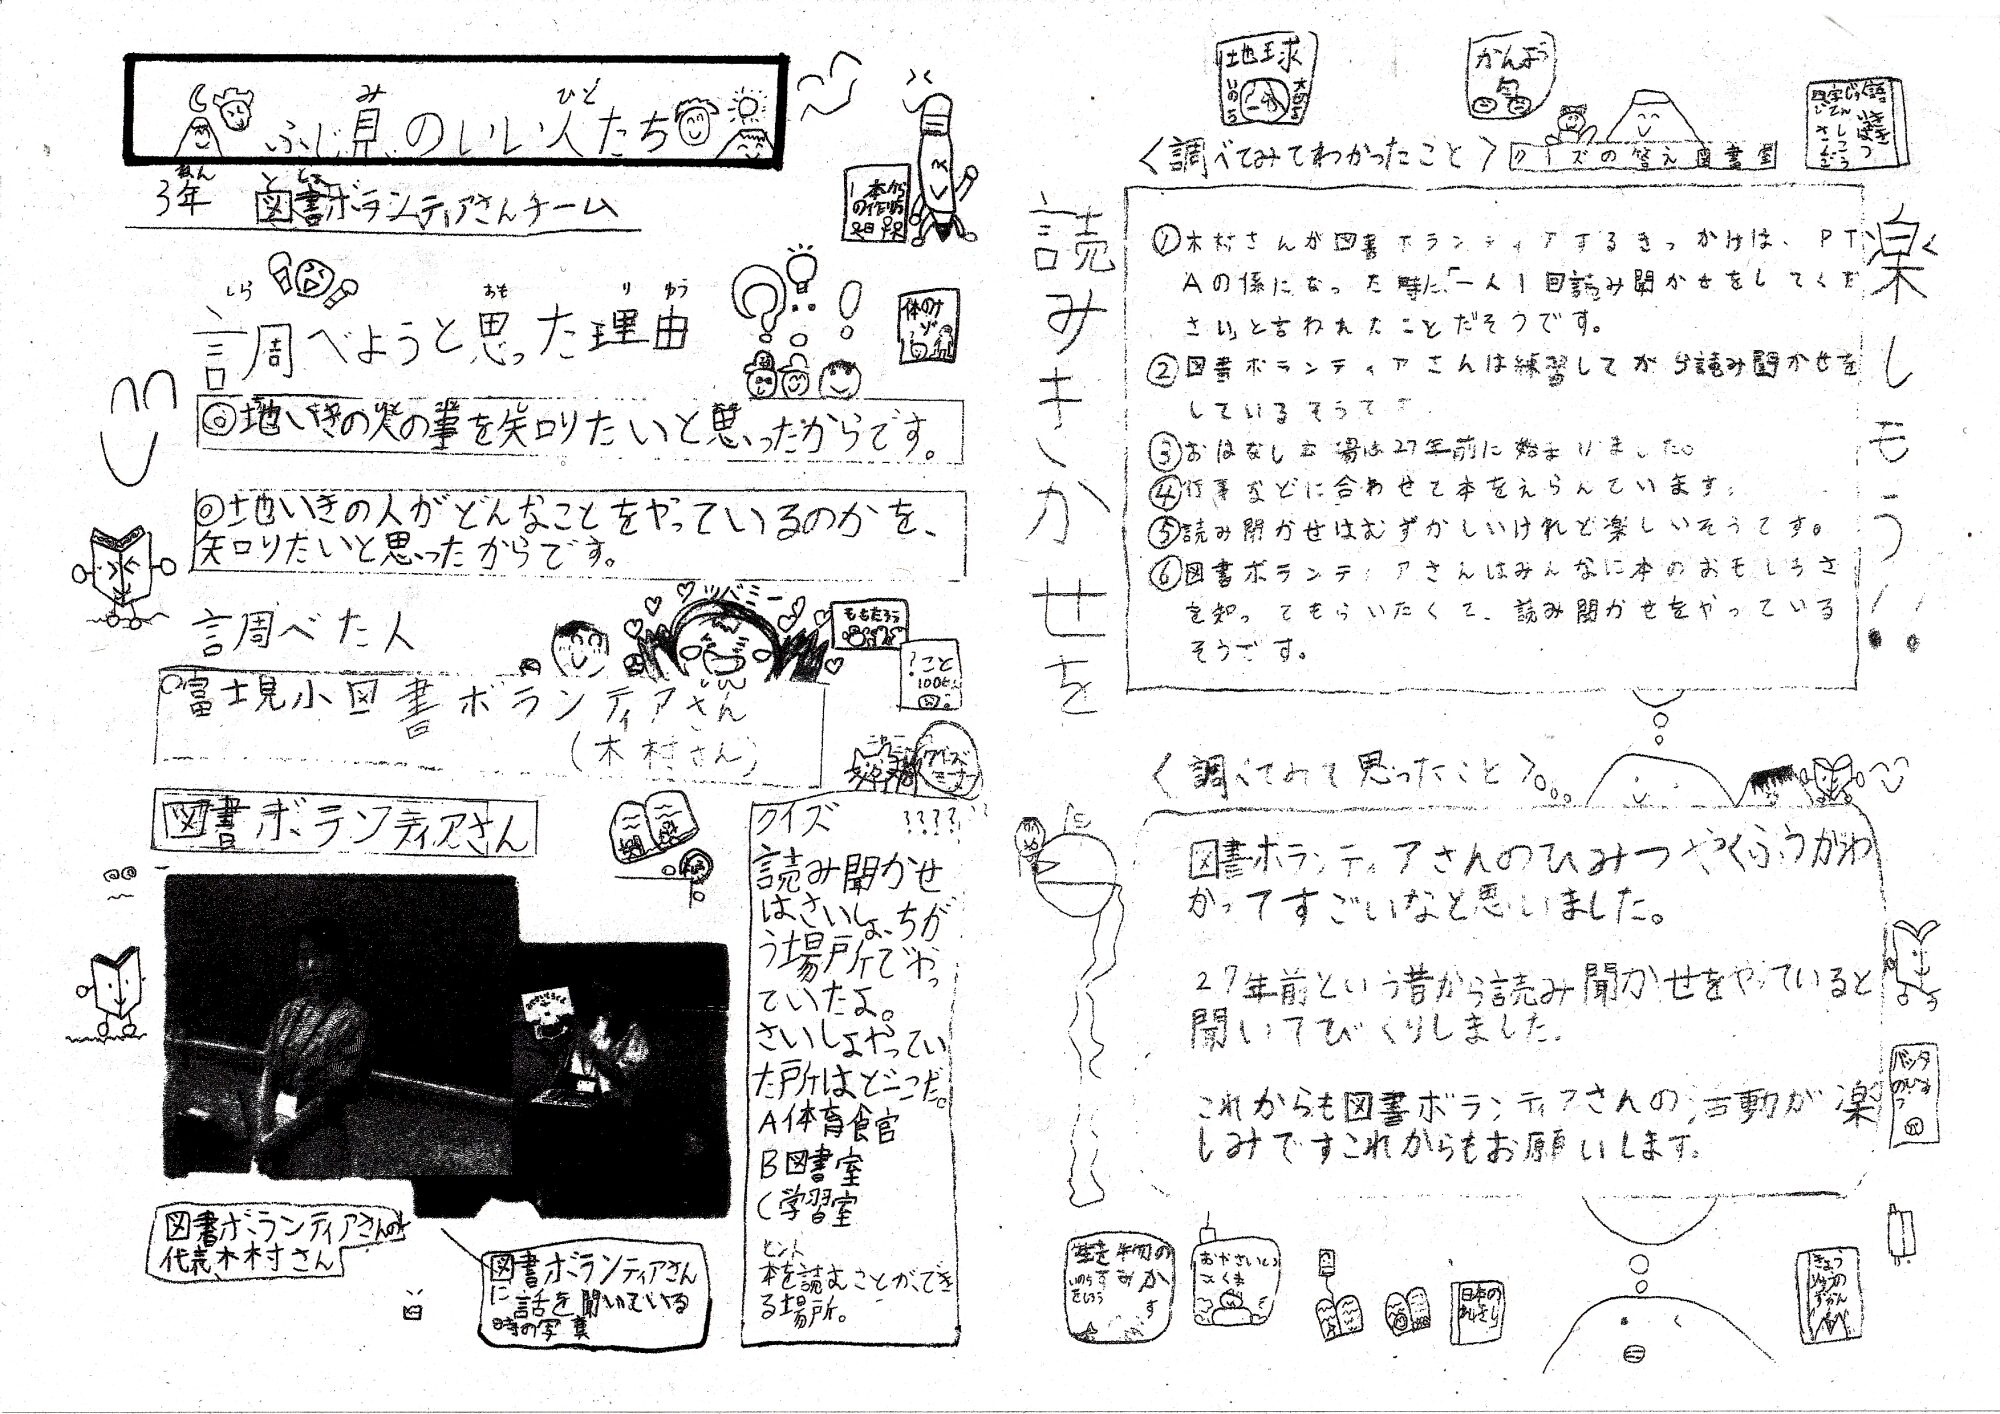 ふじ見のいい人たち
み
ひと
3年 図書ボランティアさんチーム
ねん
としょ
調べようと思った理由
しら
おも
り
ゆう
◎地いきの人の事を知りたいと思ったからです。
◎地いきの人がどんなことをやっているのかを、
知りたいと思ったからです。
調べた人
富士見小図書ボランティアさん
(木村さん)
図書ボランティアさん
図書ボランティアさんの
代表木村さん
図書ボランティアさん
に話を聞いている
時の写真
クイズ ????
読み聞かせ
はさいしょ、ちが
う場所でやっ
ていたよ。
さいしょやってい
た所はどこだ。
A体育館
B図書室
C学習室
ヒント
本を読むことができ
る場所。
ももたろう
地球
かんぽう
<調べてみてわかったこと>
クイズの答え図書室
読みきかせを
楽しもう!!
①木村さんが図書ボランティアするきっかけは、PT
Aの係になった時に、「一人1回読み聞かせをしてくだ
さい」と言われたことだそうです。
②図書ボランティアさんは練習してから読み聞かせを
しているそうです
③おはなし広場は27年前に始まりました。
④行事などに合わせて本をえらんでいます。
⑤読み聞かせはむずかしいけれど楽しいそうです。
⑥図書ボランティアさんはみんなに本のおもしろさ
を知ってもらいたくて、読み聞かせをやっている
そうです。
<調べてみて思ったこと>
図書ボランティアさんのひみつやくふうがわ
かってすごいなと思いました。
27年前という昔から読み聞かせをやっていると
聞いてびっくりしました。
これからも図書ボランティアさんの活動が楽
しみですこれからもお願いします。
バッタ
のひみ
つ